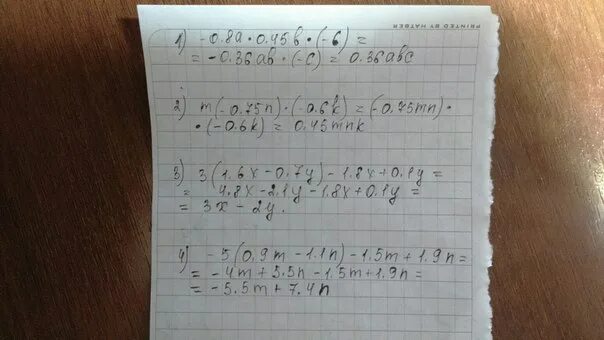 PRINTED BY HATBER
1) -0.8a · 0.45b · (-6) =
= -0.36ab · (-c) = 0.36abc
2) m(-0.75n) · (-0.6k) = (-0.75mn) ·
· (-0.6k) = 0.45mnk
3) 3(1.6x - 0.7y) - 1.8x + 0.1y =
= 4.8x - 2.1y - 1.8x + 0.1y =
= 3x - 2y.
4) -5(0,9m - 1.1n) - 1.5m + 1.9n =
= -4m + 5.5n - 1.5m + 1.9n =
= -5.5m + 7.4n